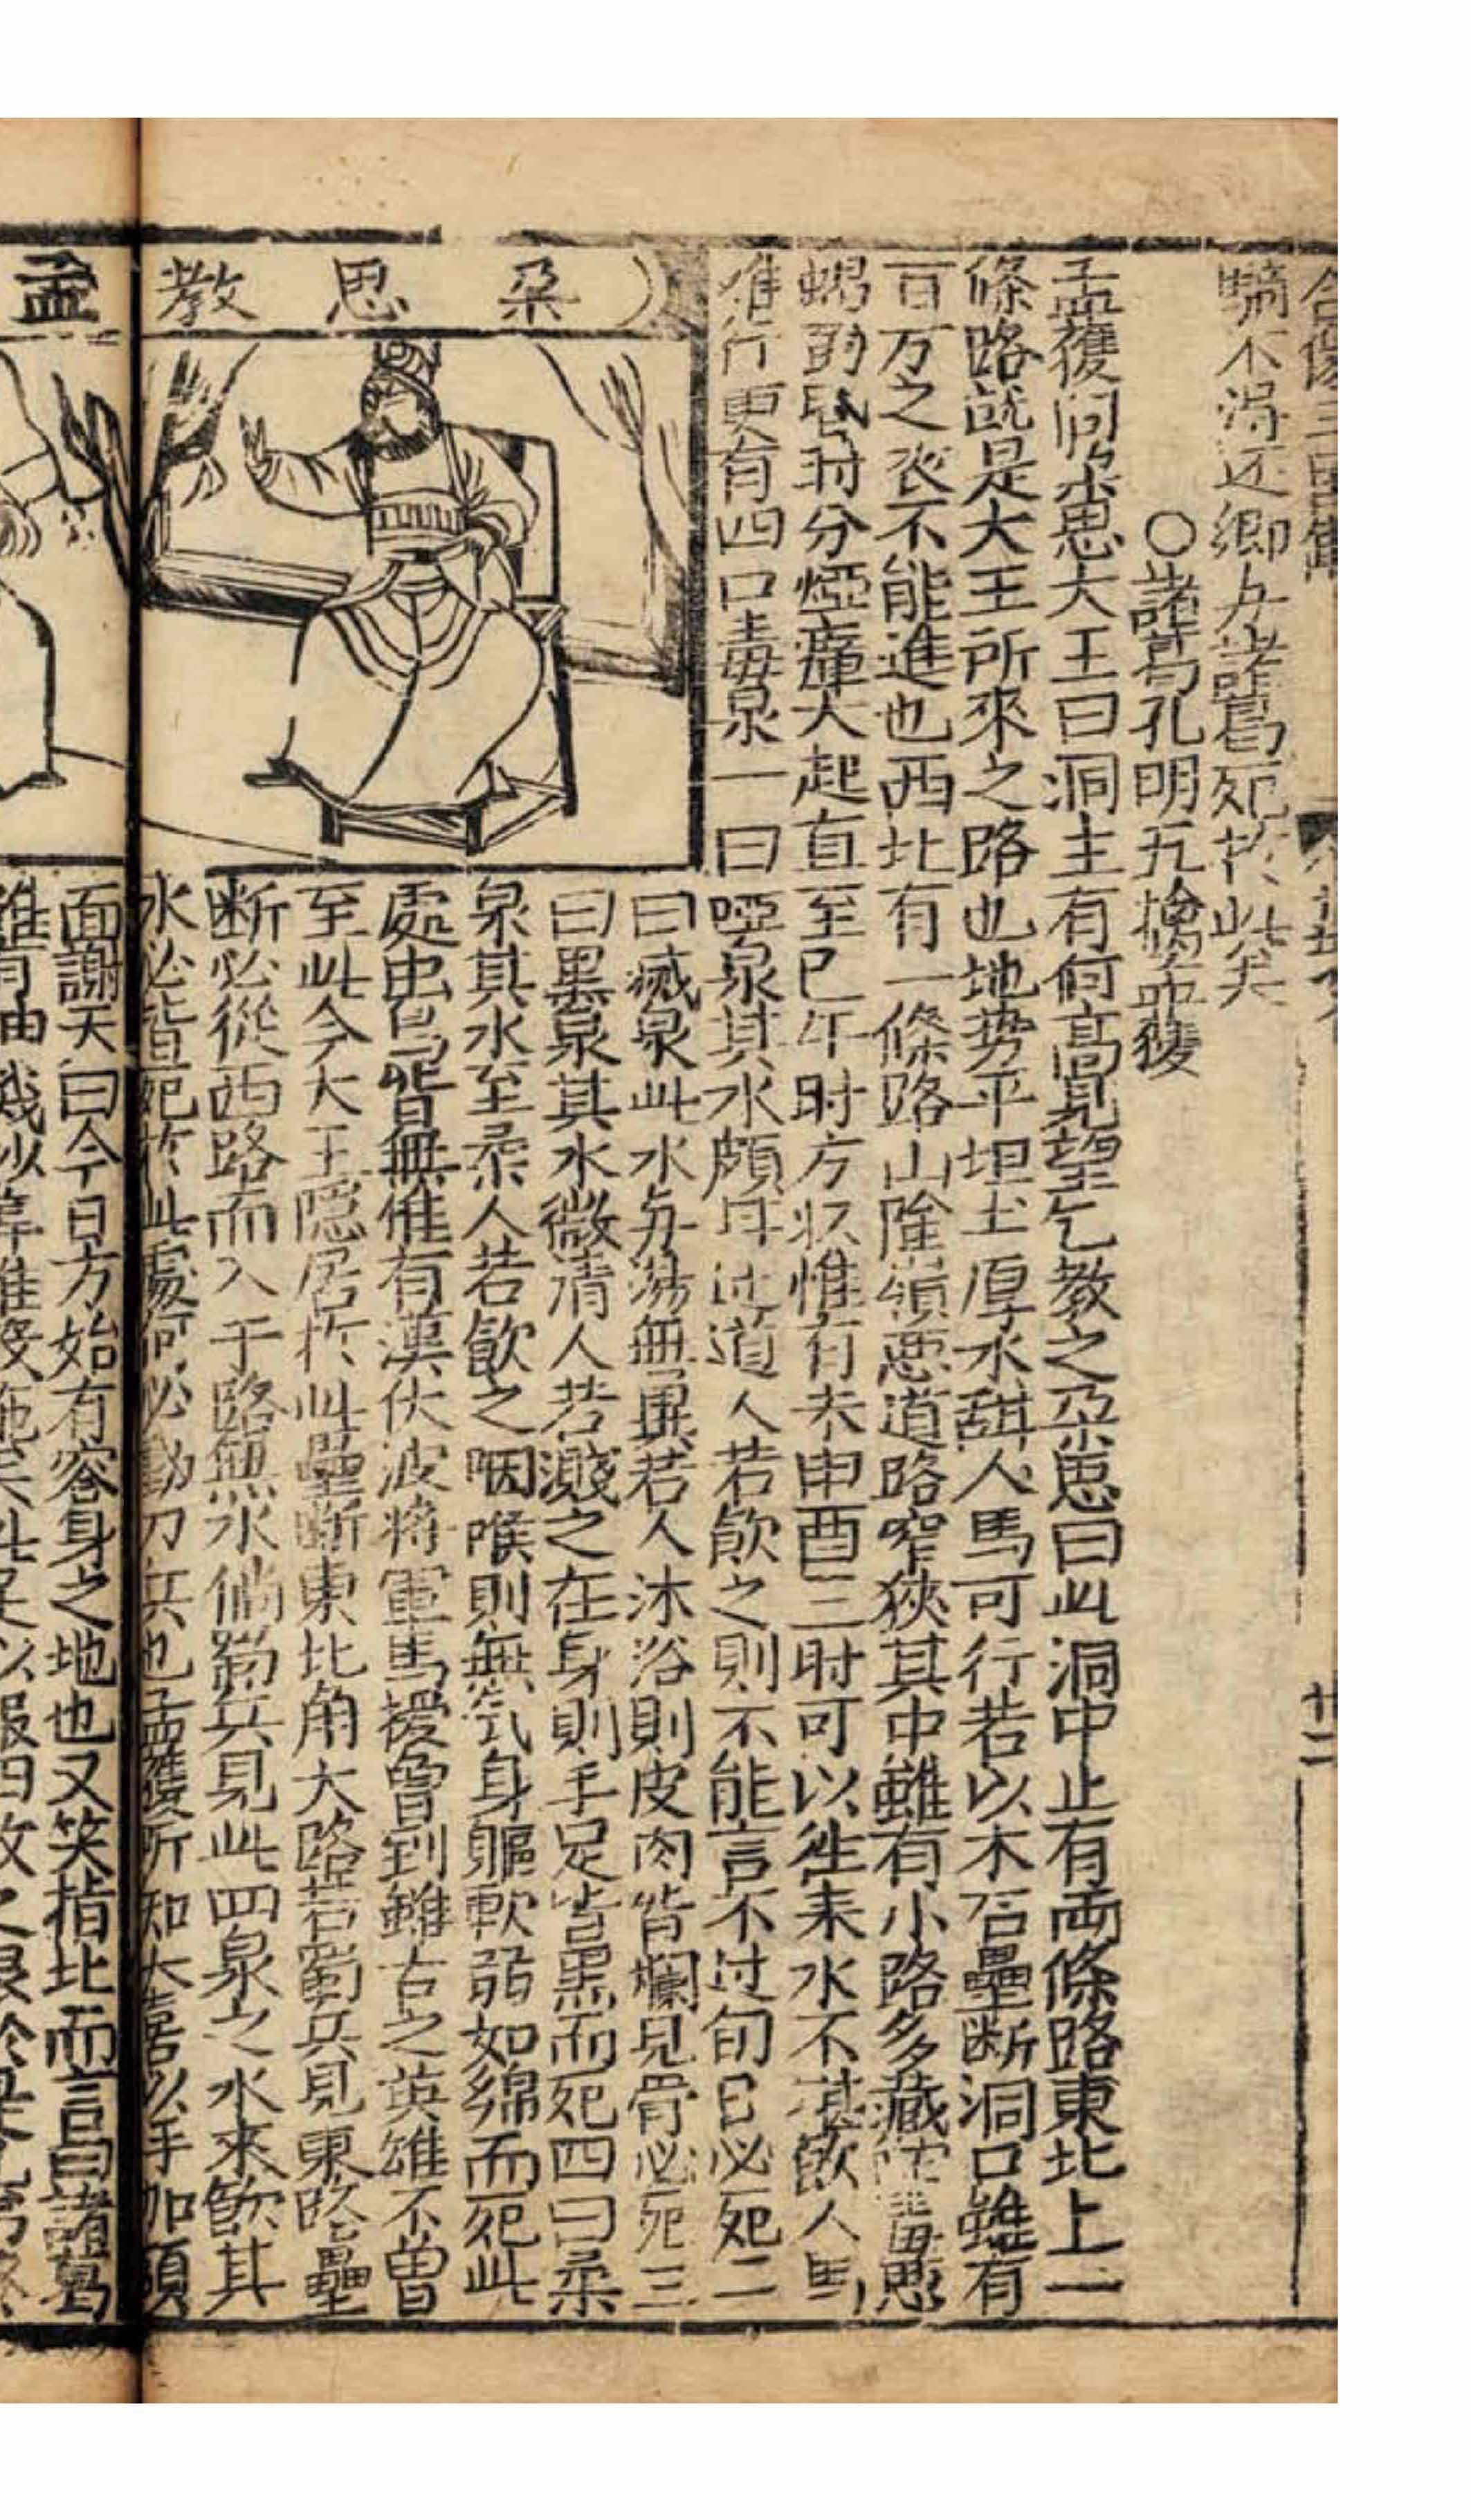 騎不得还鄉与諸葛死於此矣
○諸葛孔明五擒孟獲
孟獲问朵思大王曰洞主有何高見望乞教之朵思曰此洞中止有両條路東北上一
條路就是大王所來之路也地势平坦土厚水甜人馬可行若以木石壘断洞口雖有
百万之衆不能進也西北有一條路山險嶺悪道路窄狹其中雖有小路多藏陀毒悪
蝎到昏时分煙瘴大起直至巳午时方收惟有未申酉三时可以徃来水不堪飲人馬
难行更有四口毒泉一曰
啞泉其水頗甘过道人若飲之則不能言不过旬日必死二
曰滅泉此水与湯無異若人沐浴則皮肉皆爛見骨必死三
曰黑泉其水微清人若濺之在身則手足皆黑而死四曰柔
泉其水至柔人若飲之咽喉則無気身軀軟弱如綿而死此
處虫鳥皆無惟有漢伏波将軍馬援曾到雖古之英雄不曽
至此今大王隠居於此壘断東北角大路若蜀兵見東路壘
断必從西路而入于路無水倘蜀兵見此四泉之水來飲其
水必皆死於此處何必動刀兵也孟獲听知大喜以手加額
朵思教孟
面謝天曰今日方始有容身之地也又笑指北而言曰諸葛
廿二